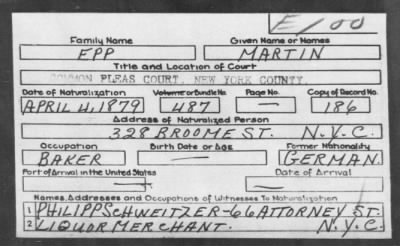 E/00
Family Name Given Name or Names
EPP MARTIN
Title and Location of Court
COMMON PLEAS COURT, NEW YORK COUNTY.
Date of Naturalization Volume or Bundle No. Page No. Copy of Record No.
APRIL 4, 1879 487 — 186
Address of Naturalized Person
328 BROOME ST. N.Y.C.
Occupation Birth Date or Age Former Nationality
BAKER — GERMAN.
Port of Arrival in the United States Date of Arrival
— —
Names, Addresses and Occupations of Witnesses To Naturalization
1 PHILIPP SCHWEITZER-66 ATTORNEY ST.
2 LIQUOR MERCHANT. N.Y.C.